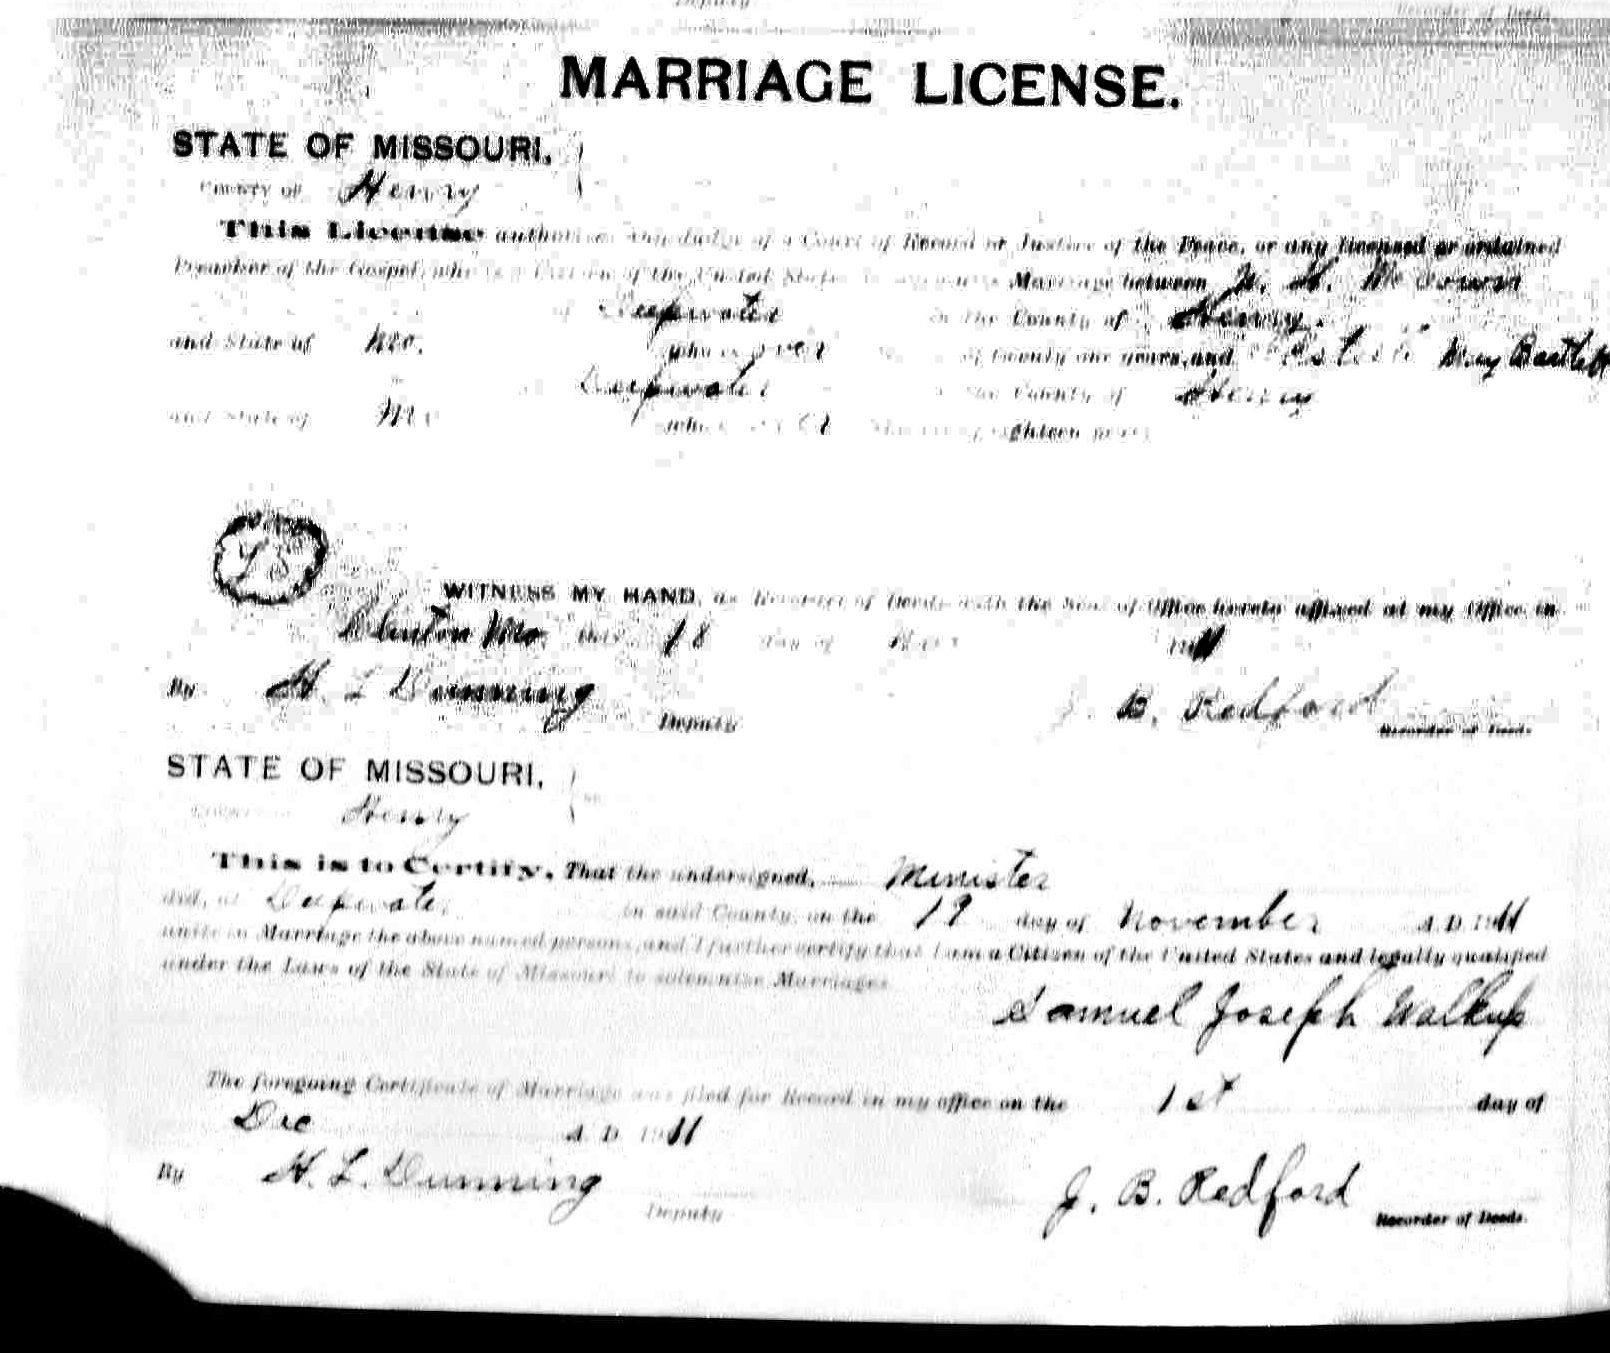 Deputy
Recorder of Deeds
MARRIAGE LICENSE.
STATE OF MISSOURI,
COUNTY OF Henry
This License authorizes any Judge of a Court of Record or Justice of the Peace, or any licensed or ordained
Preacher of the Gospel, who is a Citizen of the United States to Marriage between
of Deepwater in the County of Henry.
and State of Mo. who is over of twenty one years, and May Bartlett
Deepwater in the County of Henry
and State of Mo who is over eighteen years
LS
WITNESS MY HAND, as Recorder of Deeds with the Seal of Office hereto affixed at my Office in
Clinton Mo. this 18 day of Nov 1911
By H L Dunning Deputy J. B. Redford Recorder of Deeds
STATE OF MISSOURI,
County Henry
This is to Certify, That the undersigned, Minister
did, at Deepwater in said County, on the 19 day of November A. D. 1911
unite in Marriage the above named persons, and I further certify that I am a Citizen of the United States and legally qualified
under the Laws of the State of Missouri to solemnize Marriages
Samuel Joseph Walkup
The foregoing Certificate of Marriage was filed for Record in my office on the 1st day of
Dec A. D. 1911
By H. L. Dunning Deputy J. B. Redford Recorder of Deeds.